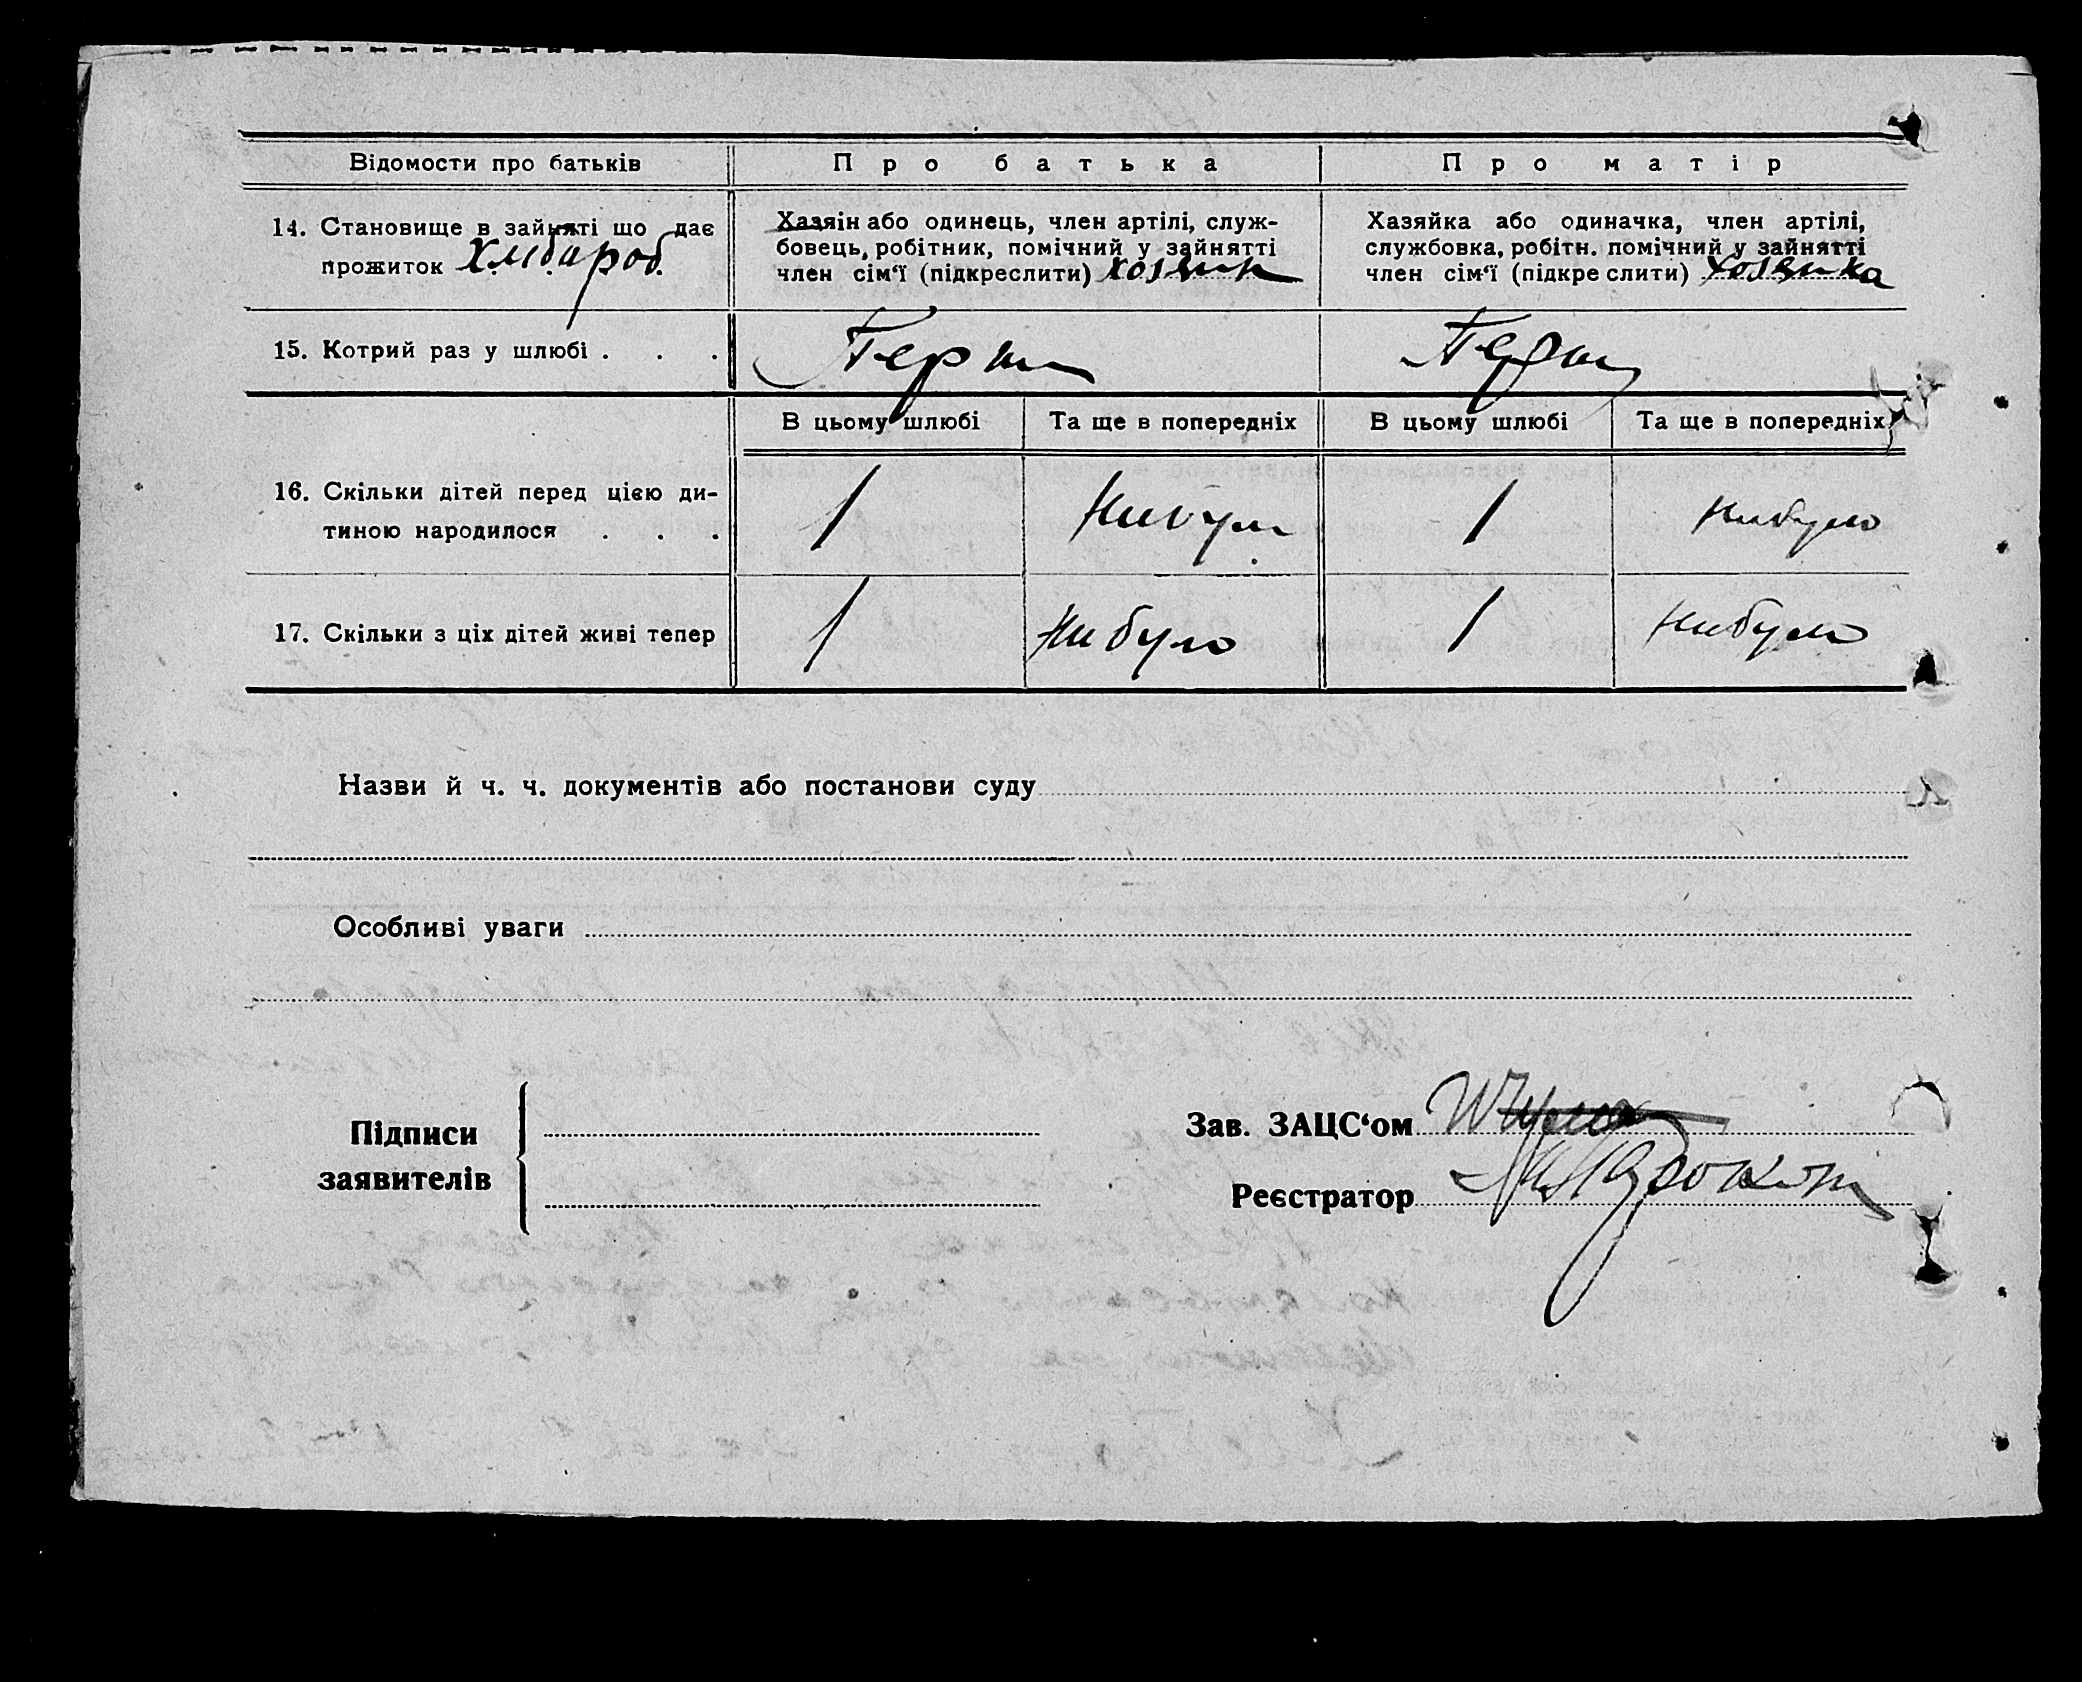 Відомости про батьків
Про батька
Про матір
14. Становище в зайняті що дає
прожиток Хлібароб.
Хазяін або одинець, член артілі, служ-
бовець, робітник, помічний у зайнятті
член сім‘ї (підкреслити) хозяин
Хазяйка або одиначка, член артілі,
службовка, робітн. помічний у зайнятті
член сім‘ї (підкре слити) хозяика
15. Котрий раз у шлюбі . . .
Перш
Перш
В цьому шлюбі
Та ще в попередніх
В цьому шлюбі
Та ще в попередніх
16. Скільки дітей перед цією ди-
тиною народилося . . .
1
1
нибуло
17. Скільки з ціх дітей живі тепер
1
нибуло
1
нибуло
Назви й ч. ч. документів або постанови суду
Особливі уваги
Підписи
заявителів
Зав. ЗАЦС‘ом
Реєстратор